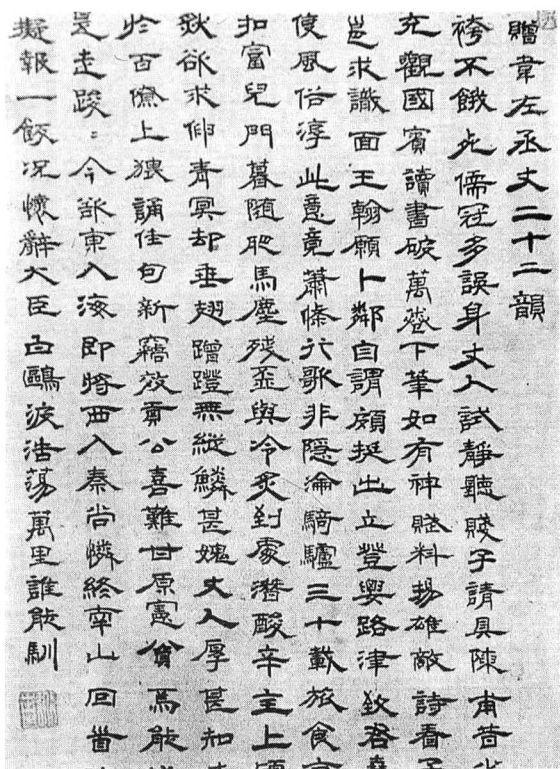 贈韋左丞丈二十二韻
袴不餓死儒冠多誤身丈人試靜聽賤子請具陳甫昔少
充觀國賓讀書破萬卷下筆如有神賦料揚雄敵詩看子
邕求識面王翰願卜鄰自謂頗挺出立登要路津致君堯
使風俗淳此意竟蕭條行歌非隱淪騎驢三十載旅食京
扣富兒門暮隨肥馬塵殘盃與冷炙到處潛酸辛主上頃
欻欲求伸青冥却垂翅蹭蹬無縱鱗甚愧丈人厚甚知
於百僚上猥誦佳句新竊效貢公喜難甘原憲貧焉能
是走踆〻今欲東入海即將西入秦尚憐終南山回首
擬報一飯況懷辭大臣白鷗波浩蕩萬里誰能馴